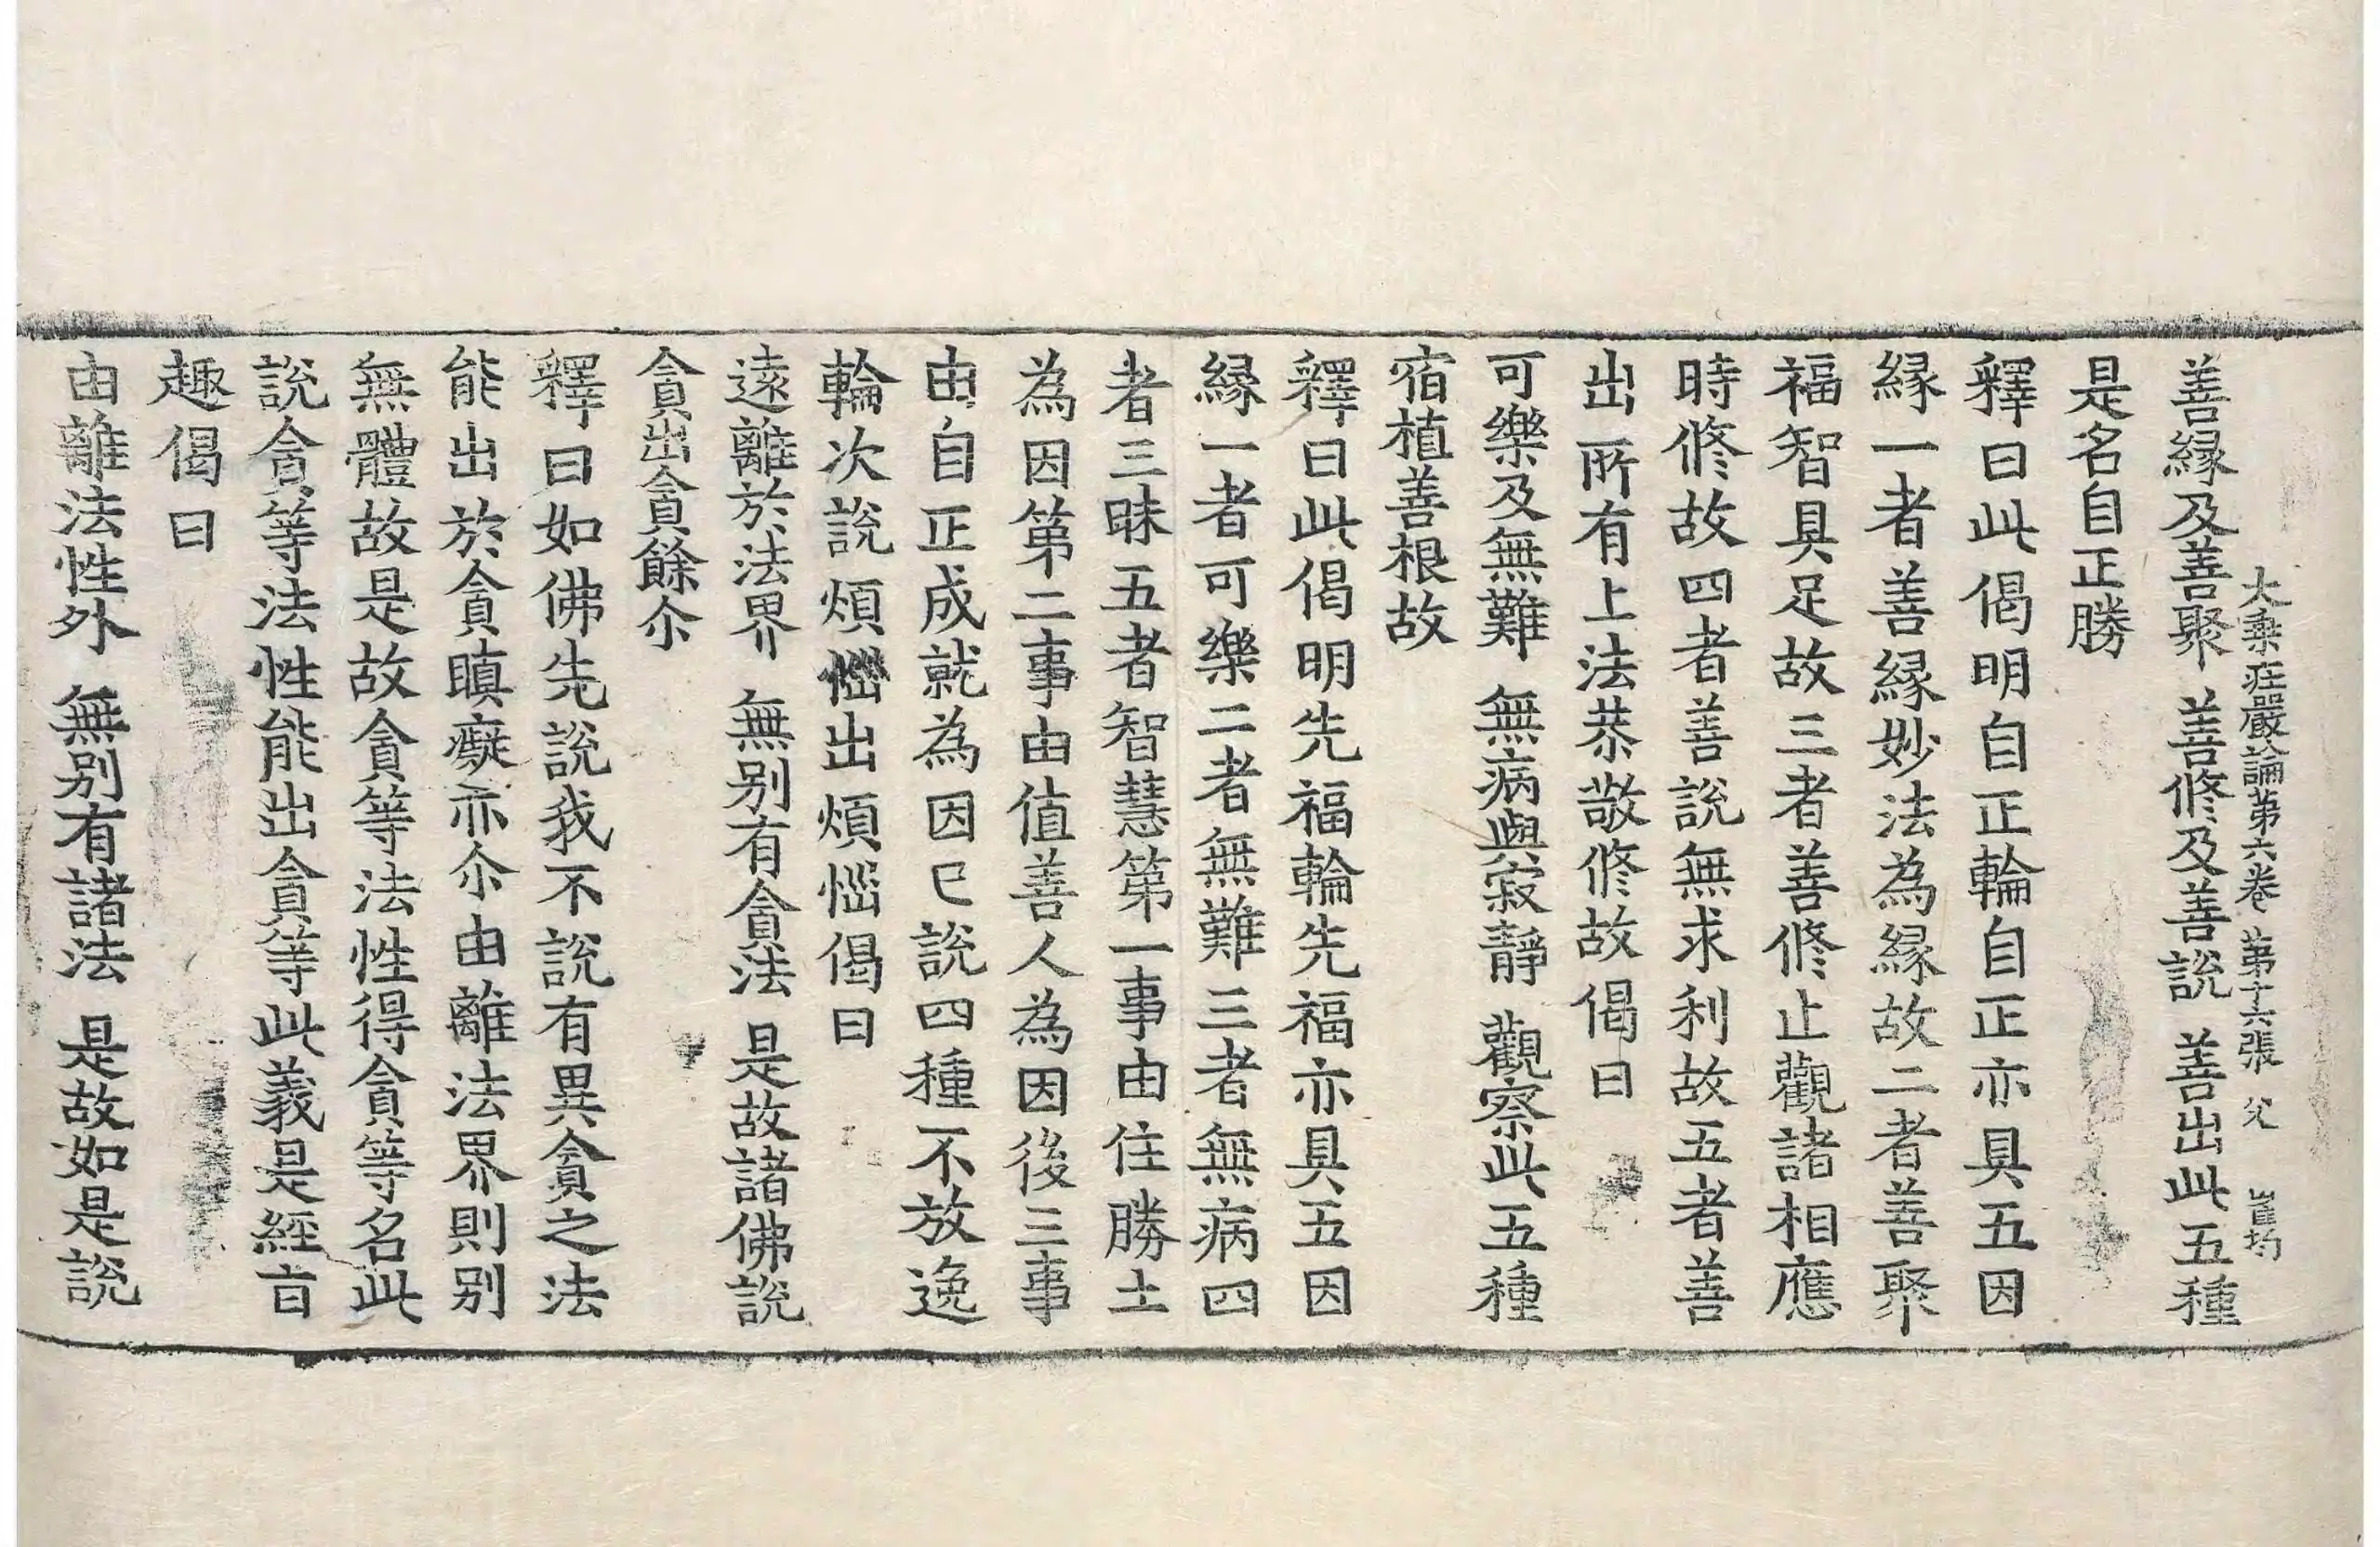 大乘莊嚴論第六卷 第十六張 父 崔均
善縁及善聚 善修及善說 善出此五種
是名自正勝
釋曰此偈明自正輪自正亦具五因
縁一者善縁妙法為縁故二者善聚
福智具足故三者善修止觀諸相應
時修故四者善說無求利故五者善
出所有上法恭敬修故偈曰
可樂及無難 無病與寂靜 觀察此五種
宿植善根故
釋曰此偈明先福輪先福亦具五因
縁一者可樂二者無難三者無病四
者三昧五者智慧第一事由住勝土
為因第二事由值善人為因後三事
由自正成就為因巳說四種不放逸
輪次說煩惱出煩惱偈曰
遠離於法界 無别有貪法 是故諸佛說
貪出貪餘尒
釋曰如佛先說我不說有異貪之法
能出於貪瞋癡亦尒由離法界則别
無體故是故貪等法性得貪等名此
說貪等法性能出貪等此義是經㫖
趣偈曰
由離法性外 無别有諸法 是故如是說